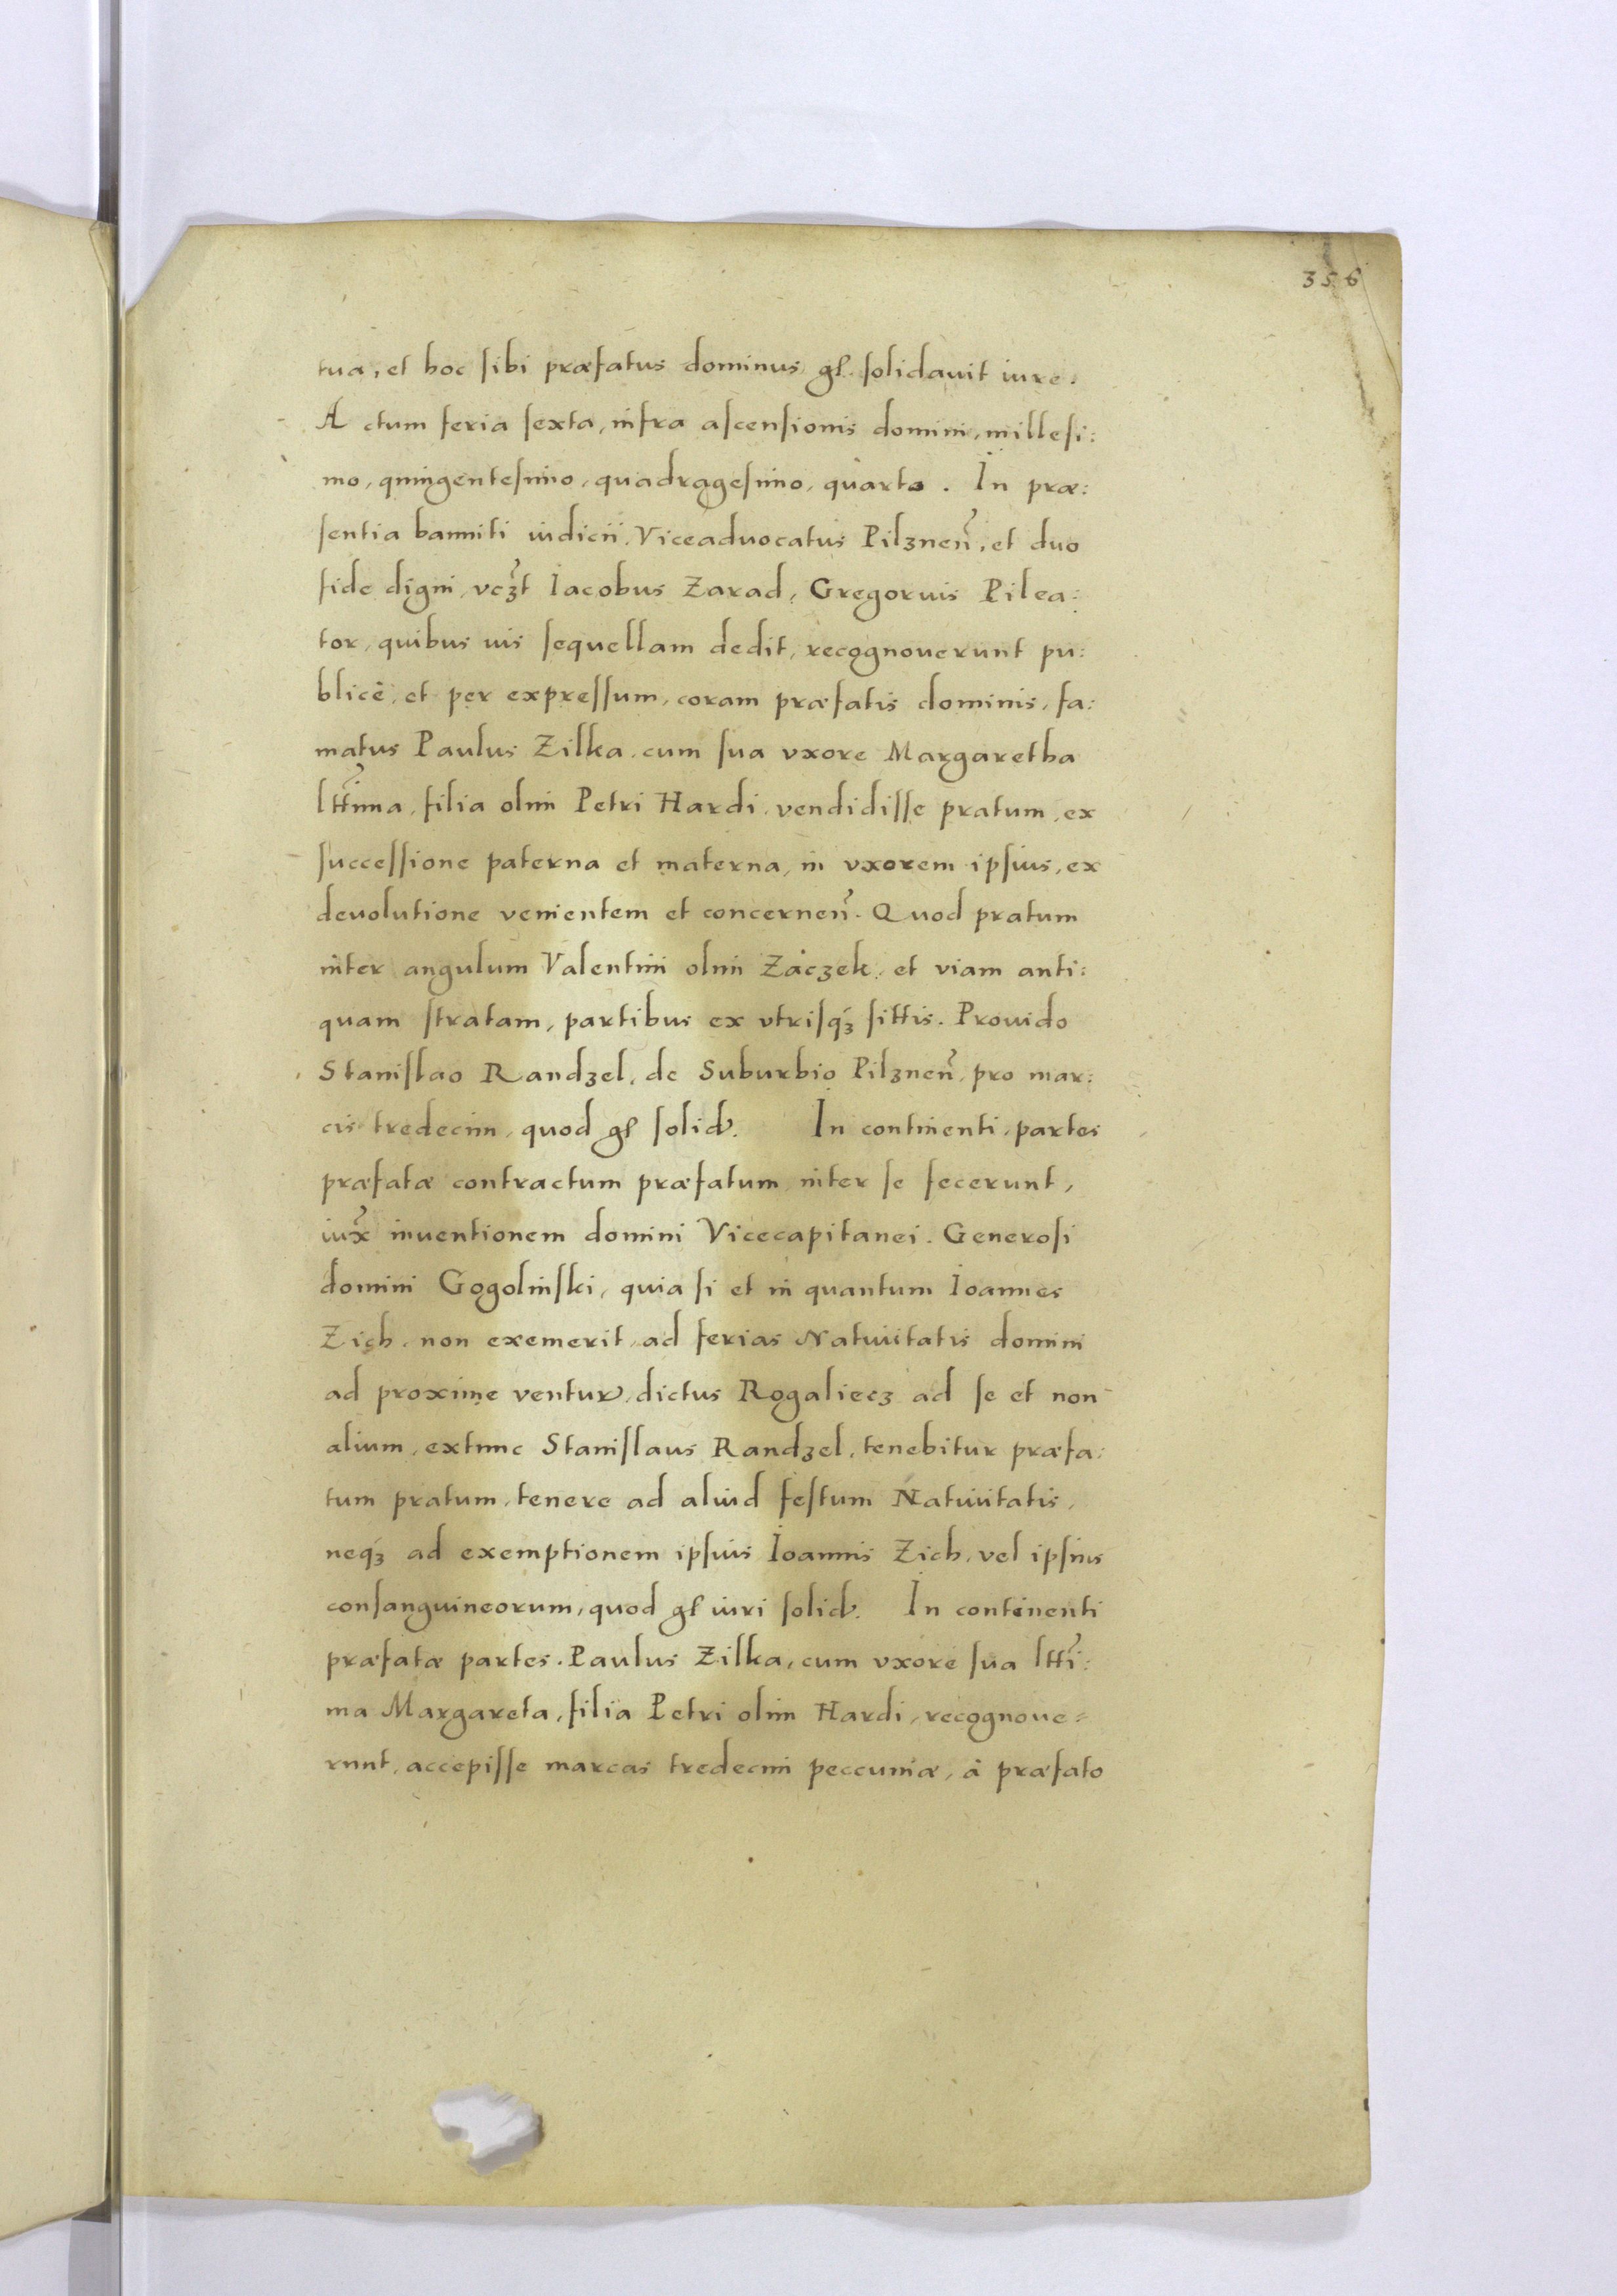 356
tua, et hoc sibi præfatus dominus gł solidauit iure.
Actum feria sexta, infra ascensionis domini, millesi:
mo, quingentesimo, quadragesimo, quarto. In præ:
sentia banniti iudicii, Viceaduocatus Pilznen̄, et duo
fide digni, vcꝫt Iacobus Zarad, Gregorius Pilea:
tor, quibus ius sequellam dedit, recognouerunt pu:
blicè, et per expressum, coram præfatis dominis, fa:
matus Paulus Zilka, cum sua vxore Margaretha
lttima, filia olim Petri Hardi, vendidisse pratum, ex
successione paterna et materna, in vxorem ipsius, ex
deuolutione venientem et concernen̄. Quod pratum
inter angulum Valentini olim Zaczek, et viam anti:
quam stratam, partibus ex vtrisqꝫ sittis. Prouido
Stanislao Randzel, de Suburbio Pilznen̄, pro mar:
cis tredecim, quod gł solid. In continenti, partes
præfatæ contractum præfatum inter se fecerunt,
iux̄ inuentionem domini Vicecapitanei. Generosi
domini Gogolinski, quia si et in quantum Ioannes
Zich, non exemerit, ad ferias Natiuitatis domini
ad proxime ventur, dictus Rogaliecz ad se et non
alium, extunc Stanislaus Randzel, tenebitur præfa:
tum pratum, tenere ad aliud festum Natiuitatis,
neqꝫ ad exemptionem ipsius Ioannis Zich, vel ipsius
consanguineorum, quod gł iuri solid. In continenti
præfatæ partes. Paulus Zilka, cum vxore sua ltti:
ma Margareta, filia Petri olim Hardi, recognoue:
runt, accepisse marcas tredecim peccuniæ, à præfato